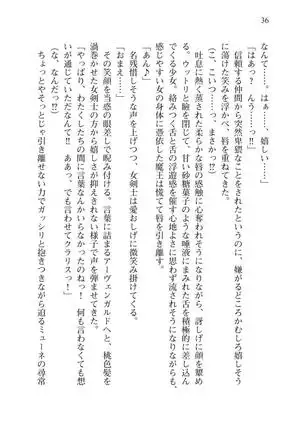 36
なんて……。はぁ……、嬉しい……」
「はぁ……んっ、っ!!」
信頼する仲間から突然卑猥なことをされたというのに、嫌がるどころかむしろ嬉しそうに蕩けた笑みを浮かべ、唇を重ねてきた。
(こ、こいつ……っ、まさかっ!?)
吐息に熱く蒸された柔らかな唇の感触に心奪われそうになりながら、訝しげに顔を顰める。ウットリと瞼を閉じて、甘い砂糖菓子のような唾液にまみれた舌を積極的に差し込んでくる少女。絡みつく舌と舌の浮遊感を催す心地よさに思わず流されそうになりながらも、感じやすい女の身体に憑依した魔王は慌てて唇を引き離す。
「あん♪」
名残惜しそうな声を上げつつ、女剣士は愛おしげに微笑み掛けてくる。
「おまえ……」
その笑顔を当惑の眼差しで睨み付ける。言葉に詰まるアーヴェンガルドへと、桃色髪を渦巻かせた女剣士の方から嬉しさが抑えきれない様子で声を弾ませてきた。
「やっぱり、わたくしたちの間に言葉なんかいらなかったのねっ! 何も言わなくても想いが通じていただなんて!! あぁっ、でも言わせてクラリスっ!」
(な、なんだっ!?)
ちょっとやそっとじゃ引き離せない力でガッシリと抱きつきながら迫るミューネの尋常